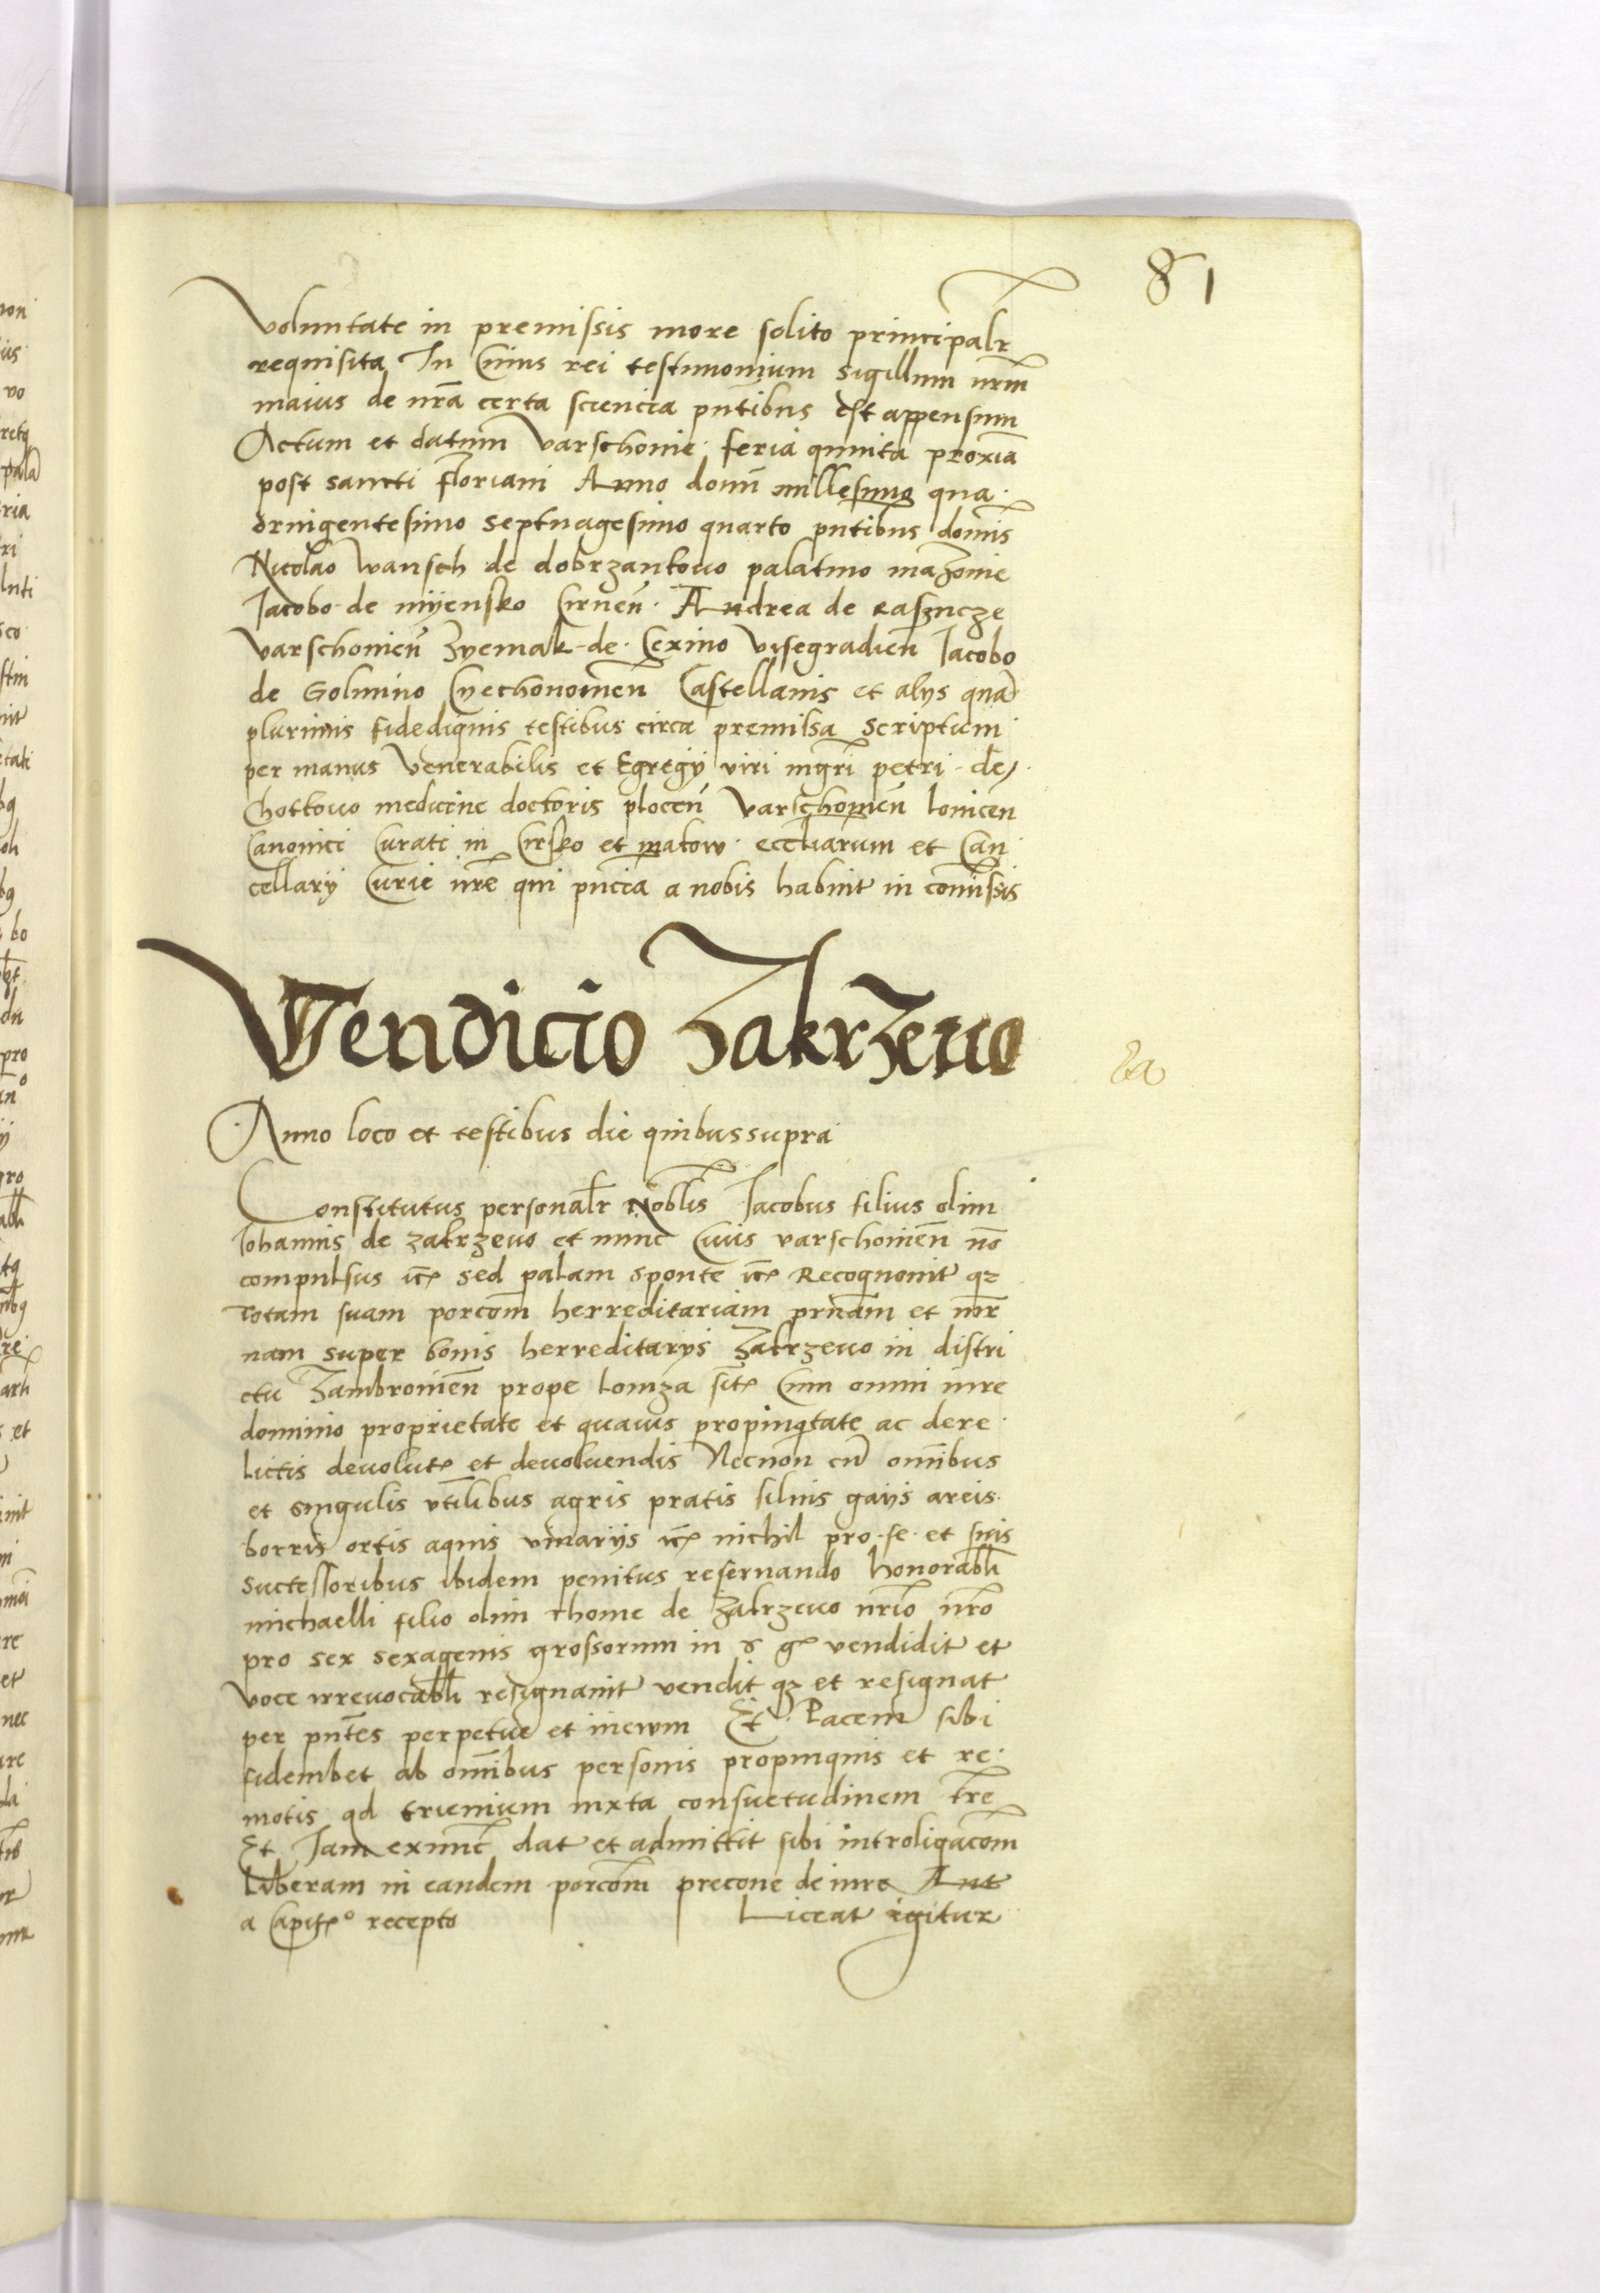 81
voluntate in premissis more solito principalr̄
requisita In Cuius rei testimonium sigillum nr̄m
maius de nr̄a certa sciencia pn̄tibus est appensum
Actum et datum varschonie feria quinta proxīa
post sancti floriani Anno domī millesimo qua
dringentesimo septuagesimo quarto pn̄tibus domīs
Nicolao wansch de dobrzankouo palatino mazonie
Jacobo de miyensko Cirnen̄ Andrea de raszincze
varschonien̄ Zyemak de Cexino visegradien̄ Jacobo
de Golmino Cyechonomen̄ Castellanis et alys quā
plurimis fidedignis testibus circa premissa Scriptum
per manus Venerabilis et Egregy viri mgr̄i petri de
Chottouo medicine doctoris plocen̄ varschonien̄ lonicen̄
Canonici Curati in Cirsko et makow eccl̄iarum et Can
cellary Curie nr̄e qui pn̄cia a nobis habuit in com̄issis
Vendicio Zakrzeuo
Anno loco et testibus die quibus supra
Constitutus personalr̄ Nobl̄is Jacobus filius olim
Iohannis de zakrzeuo et nunc Ciuis varschonien̄ nō
compulsus etc̄ sed palam sponte etc̄ Recognouit qz
totam suam porcōm herreditariam pr̄nam et mr̄
nam super bonis herreditarys Zakrzeuo in distri
ctu Zambromien̄ prope lomza sit̄ Cum omni iure
dominio proprietate et quauis propinqtate ac dere
lictis deuolut̄ et deuoluendis Necnon cū om̄ibus
et singulis vt̄ilibus agris pratis siluis gays areis
borris ortis aquis vinarys etc̄ nichil pro se et suis
successoribus ibidem penitus reseruando honorabl̄i
michaelli filio olim thome de Zakrzeuo nr̄io nr̄o
pro sex sexagenis grossorum in ꝛ ḡ vendidit et
voce irreuocabl̄i resignauit vendit qz et resignat
per pn̄tes perpetue et ineuum Et Pacem sibi
fideiubet ab om̄ibus personis propinquis et re
motis ad trienium iuxta consuetudinem tr̄e
Et Jam exnunc dat et admittit sibi introligacōm
liberam in eandem porcōm precone de iure Aut
a Capit̄o recepto Liceat igitur